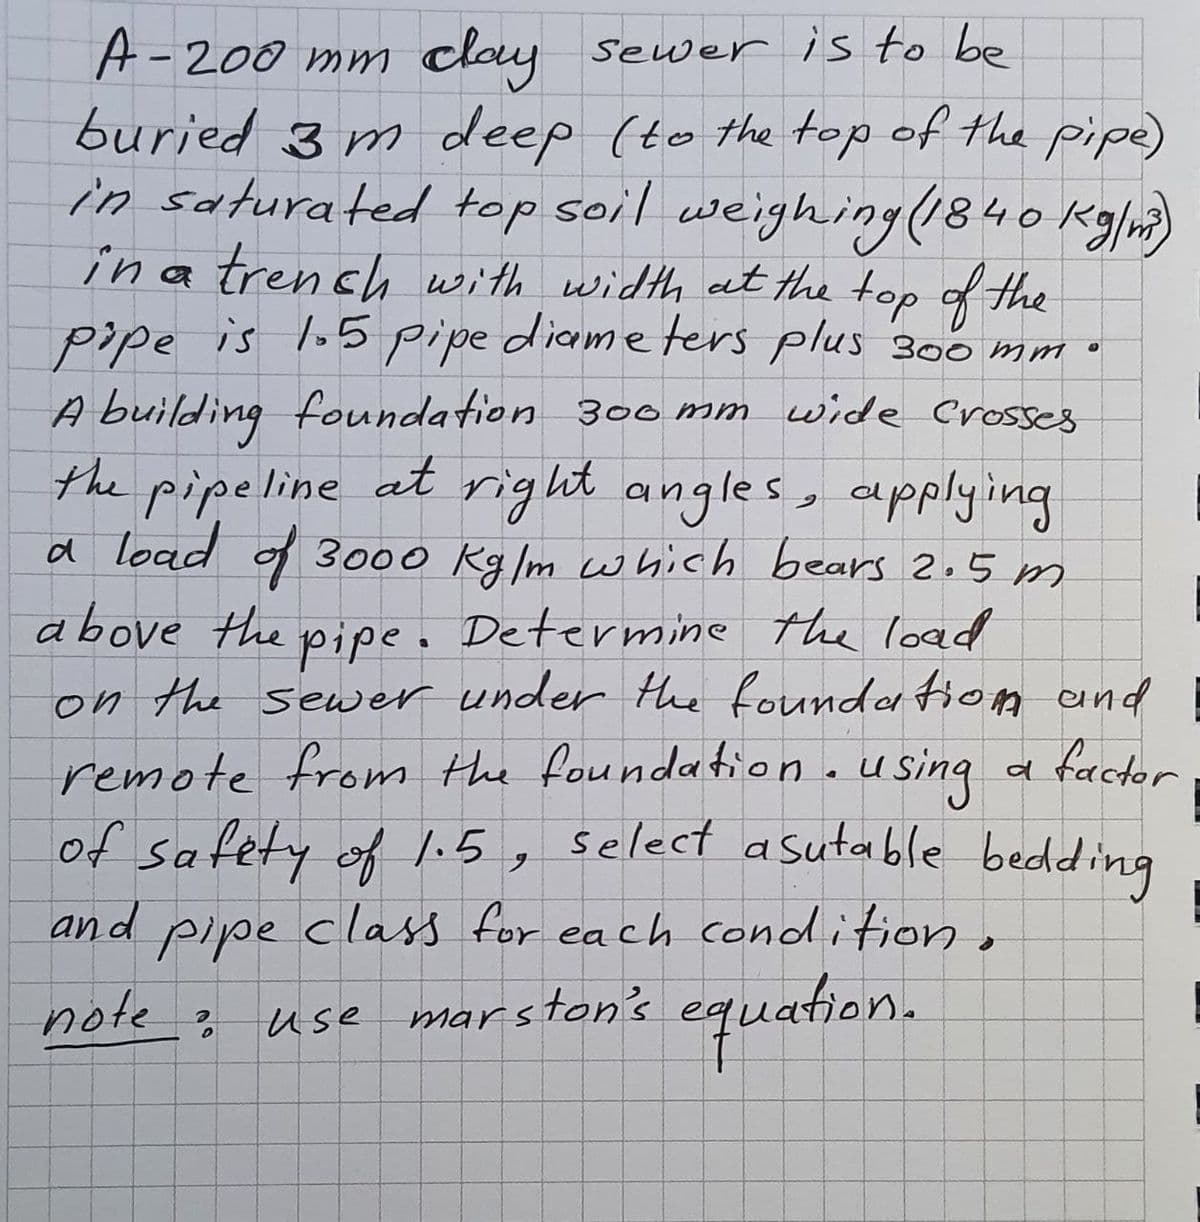 A-200 mm clay sewer is to be
buried 3 m deep (to the top of the pipe)
in saturated top soil weighing (1840 Kg/m³)
in a trench with width at the top of the
pipe is 1.5 pipe diameters plus 300 mm.
A building foundation 300 mm wide crosses
the pipeline at right angles, applying
a load of 3000 Kg/m which bears 2.5 m
above the pipe. Determine the load
on the sewer under the foundation and
remote from the foundation. using a factor
of safety of 1.5, select a sutable bedding
and pipe class for each condition.
note: use marston's equation.